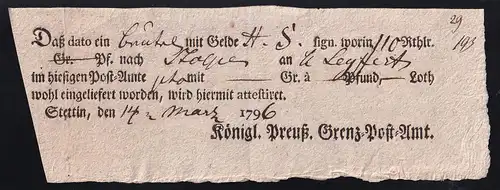 29
Daß dato ein beutel mit Gelde H. S. sign. worin 110 Rthlr. 193
Gr. Pf. nach Stolpe an
im hiesigen Post-Amte mit — Gr. à Pfund, — Loth
wohl eingeliefert worden, wird hiermit attestiret.
Stettin, den 14 Marz 1796
Königl. Preuß. Grenz-Post-Amt.